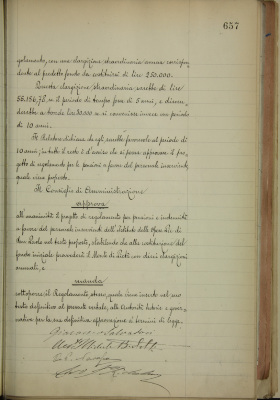 657
golamento, con una elargizione straordinaria annua corrispon-
dente al predetto fondo da costituirsi di lire 250.000.
Questa elargizione straordinaria sarebbe di lire
56.156,76 se il periodo di tempo fosse di 5 anni, e discen-
derebbe a tonde lire 30.000 se si convenisse invece un periodo
di 10 anni.
Il Relatore dichiara che egli sarebbe favorevole al periodo di
10 anni; in tutto il resto è d'avviso che si possa approvare il pro-
getto di regolamento per le pensioni a favore del personale inserviente,
quale viene proposto.
Il Consiglio di Amministrazione
approva
all'unanimità il progetto di regolamento per pensioni e indennità
a favore del personale inserviente dell'Istituto delle Opere Pie di
San Paolo nel testo proposto, stabilendo che alla costituzione del
fondo iniziale provvederà il Monte di Pietà con dieci elargizioni
annuali, e
manda
sottoporre il Regolamento stesso, quale viene inserto nel suo
testo definitivo al presente verbale, alle Autorità tutorie e gover-
native per la sua definitiva approvazione ai termini di legge.